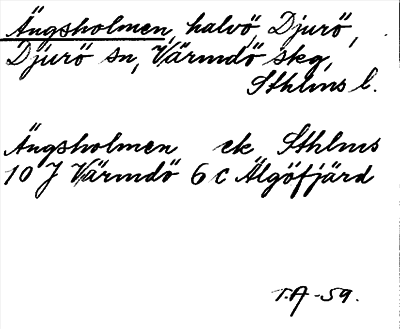 Ängsholmen, halvö, Djurö,
Djurö sn, Värmdö skg,
Sthlms l.
Ängsholmen ek Sthlms
10 J Värmdö 6 c Älgöfjärd
T.A -59.